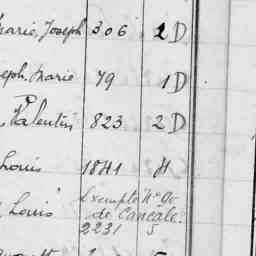 Marie, Joseph 306 2 D
eph. Marie 79 1 D
Valentin 823 2 D
Louis 1841 H
Exempté Nº Or
Louis de Cancale
2231 5